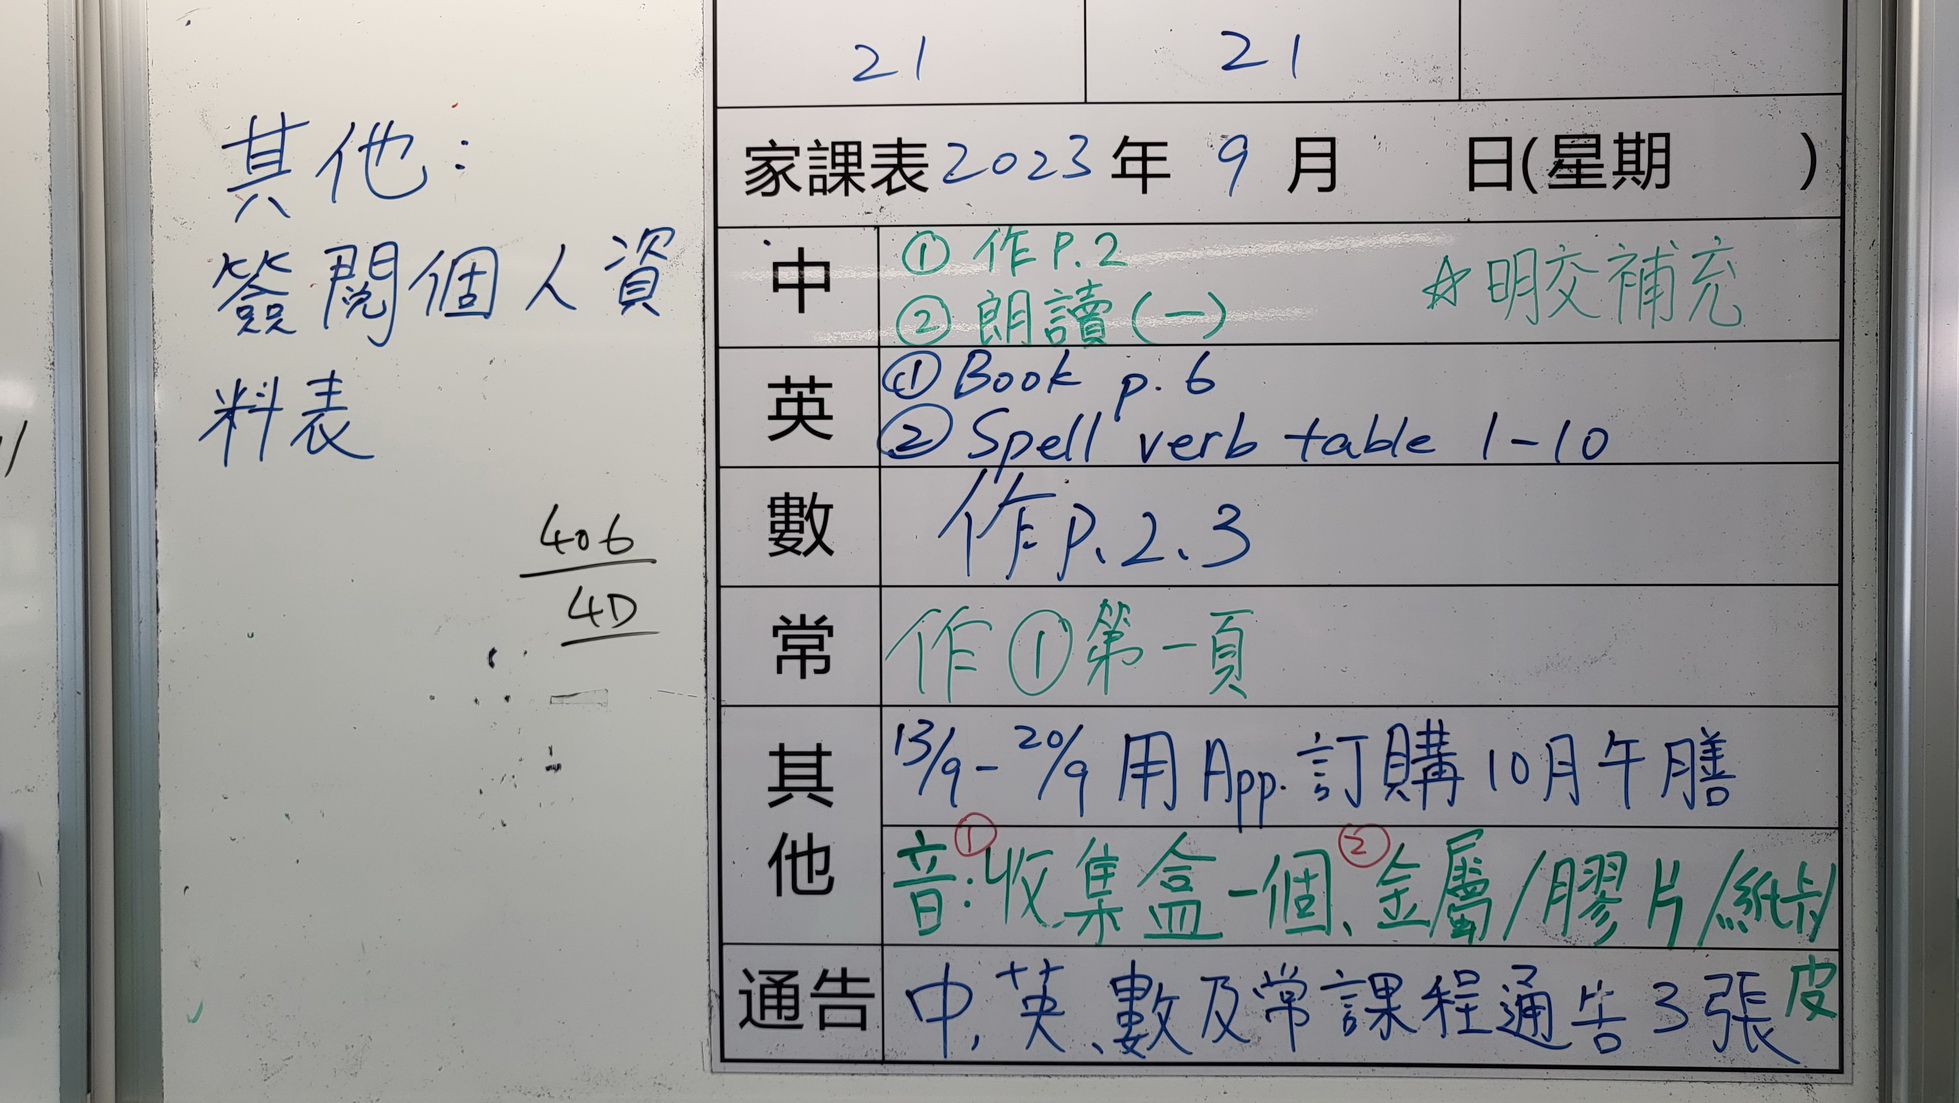 21 21
家課表2023年 9 月 日(星期 )
中 ① 作P.2 ☆明交補充
② 朗讀(一)
英 ① Book p. 6
② Spell verb table 1-10
數 作P、2、3
常 作①第一頁
其他 13/9-20/9 用App.訂購10月午膳
音:①收集盒一個、②金屬/膠片/紙卡/
皮
通告 中、英、數及常課程通告3張
其他:
簽閱個人資
料表
406
4D